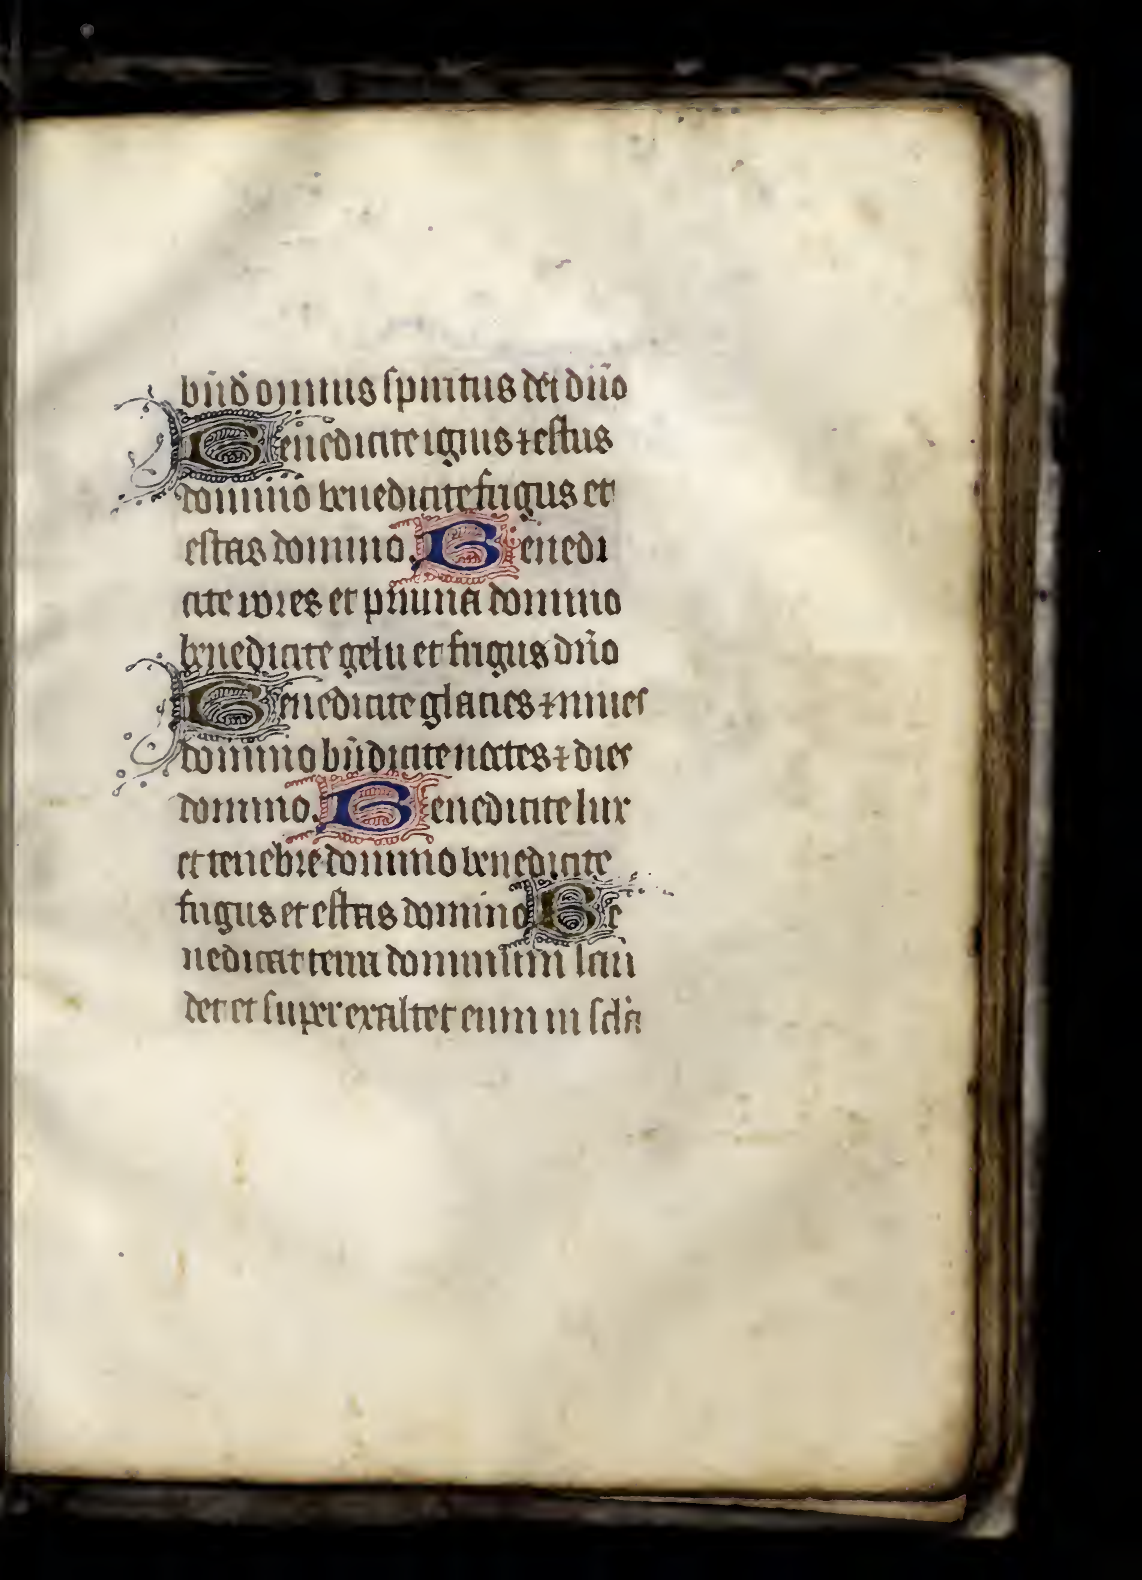 bn̄d̄ om̄nus spiritus dei dn̄o
Benedicite ignis ⁊ estus
domino benedicite frigus et
estas domino. Benedi
cite rores et pruina domino
benedicite gelu et frigus dn̄o
Benedicite glacies ⁊ niues
domino bn̄dicite noctes ⁊ dies
domino. Benedicite lux
et tenebre domino benedicite
frigus et estas domino Be
nedicat terra dominum lau
det et superexaltet eum in scl̄a